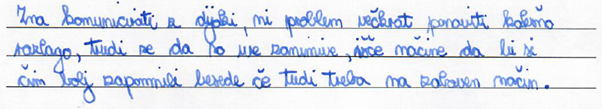 Zna komunicirati z dijaki, ni problem večkrat ponoviti kakšno
razlago, trudi se da so ure zanimive, išče načine da bi si
čim bolj zapomnili besede če tudi treba na zabaven način.